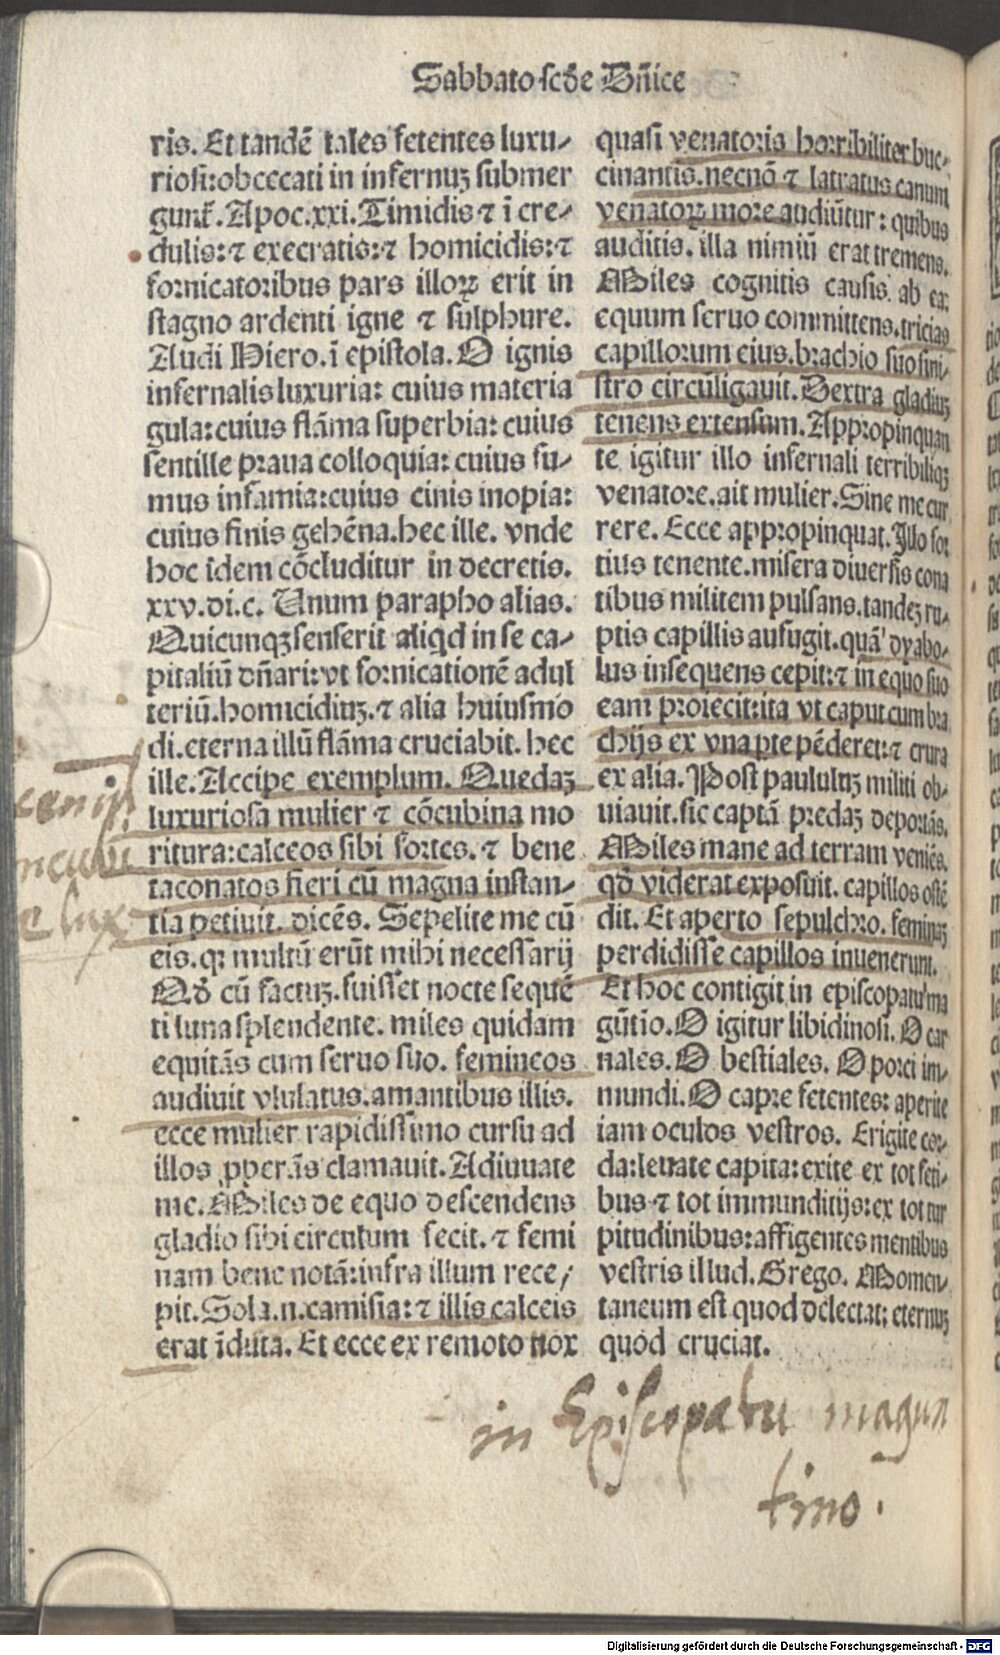 Sabbato scðe Dñice
ris. Et tandẽ tales fetentes luxu⸗
riosi:obcecati in infernuꝫ submer
gunt̃. Apoc.xxi. Timidis ⁊ ĩ cre⸗
dulis:⁊ execratis:⁊ homicidis:⁊
fornicatoribus pars illoꝝ erit in
stagno ardenti igne ⁊ sulphure.
Audi Hiero. ĩ epistola. O ignis
infernalis luxuria: cuius materia
gula:cuius flãma superbia: cuius
sentille praua colloquia: cuius fu⸗
mus infamia:cuius cinis inopia:
cuius finis gehẽna.hec ille. vnde
hoc idem cõcluditur in decretis.
xxv.di.c. Unum parapho alias.
Quicunqꝫ senserit aliqd in se ca⸗
pitaliũ dñari:vt fornicationẽ adul
teriũ.homicidiuꝫ.⁊ alia huiusmo
di.eterna illũ flãma cruciabit. hec
ille. Accipe exemplum. Quedaꝫ
luxuriosa mulier ⁊ cõcubina mo
ritura:calceos sibi fortes. ⁊ bene
taconatos fieri cũ magna instan⸗
tia petiuit. dicẽs. Sepelite me cũ
eis.qꝛ multũ erũt mihi necessarij
Qð cũ factuꝫ.fuisset nocte sequẽ
ti luna splendente. miles quidam
equitãs cum seruo suo. femineos
audiuit vlulatus.amantibus illis.
ecce mulier rapidissimo cursu ad
illos ꝓperãs clamauit. Adiuuate
me. Miles de equo descendens
gladio sibi circulum fecit. ⁊ femi
nam bene notã:infra illum rece⸗
pit. Sola.n.camisia:⁊ illis calceis
erat ĩduta. Et ecce ex remoto vox
quasi venatoris horribiliter buc⸗
cinantis.necnõ ⁊ latratus canum
venatoꝝ more audiũtur: quibus
auditis. illa nimiũ erat tremens.
Miles cognitis causis. ab ea:
equum seruo committens.tricias
capillorum eius.brachio suo sini⸗
stro circũligauit. Dextra gladiuꝫ
tenens extensum. Appropinquan
te igitur illo infernali terribiliqꝫ
venatore.ait mulier. Sine me cur
rere. Ecce appropinquat. Illo for
tius tenente.misera diuersis cona
tibus militem pulsans.tandeꝫ ru⸗
ptis capillis aufugit.quã dyabo⸗
lus insequens cepit:⁊ in equo suo
eam proiecit:ita vt caput cum bra
chijs ex vna pte pẽderet:⁊ crura
ex alia. Post paululuꝫ militi ob⸗
uiauit.sic captã predaꝫ deportãs.
Miles mane ad terram veniẽs.
qð viderat exposuit. capillos ostẽ
dit. Et aperto sepulchro. feminaꝫ
perdidisse capillos inuenerunt.
Et hoc contigit in episcopatu ma
gũtio. O igitur libidinosi. O car
nales. O bestiales. O porci im⸗
mundi. O capre fetentes: aperite
iam oculos vestros. Erigite cor⸗
da:leuate capita:exite ex tot feti⸗
bus ⁊ tot immunditijs:ex tot tur
pitudinibus:affigentes mentibus
vestris illud. Grego. Momen⸗
taneum est quod delectat: eternuꝫ
quod cruciat.
in Episcopatu magun
tino.